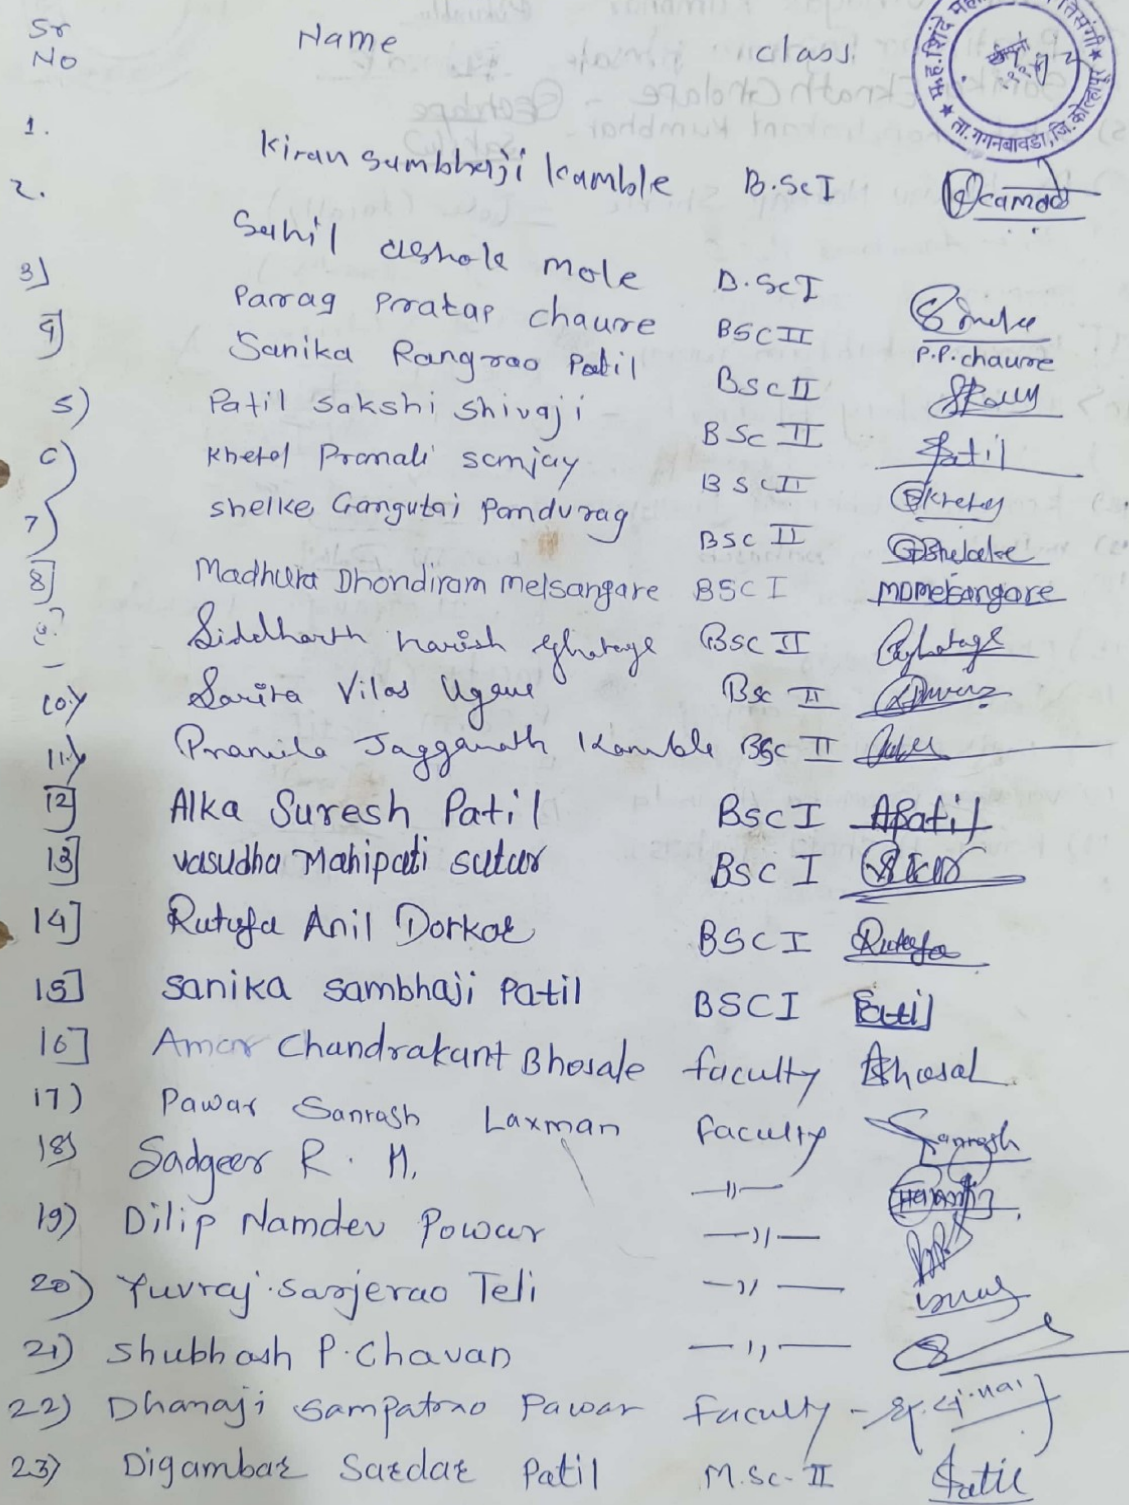 Sr No Name class
1. Kiran Sambhaji Kamble B.Sc I
2. Sahil Ashok Mole B.Sc I
3) Parrag Pratap chaure BSC II P.P.chaure
4) Sanika Rangrao Patil BSC II
5) Patil Sakshi Shivaji BSc II Patil
6) Khetal Pranali sanjay BSC II
7) shelke Gangutai Pandurag BSC II
8] Madhura Dhondiram Melsangare BSC I MDMelsangare
Siddharth harish Ghatage BSC II Ghatage
10.) Sarita Vilas Ugave BSc II
11.) Pramila Jagganath Kamble BSc II
12] Alka Suresh Patil BSC I APatil
13] vasudha Mahipati sutar BSC I
14] Rutuja Anil Dorkar BSC I Rutuja
15] sanika sambhaji patil BSC I Patil
16] Amar Chandrakant Bhosale faculty
17) Pawar Santosh Laxman faculty
18) Sadgeer R. H. —11—
19) Dilip Namdev Powar —11—
20) Yuvraj.sarjerao Teli —11—
21) Shubhash P.Chavan —11—
22) Dhanaji Sampatrao Pawar faculty
23) Digambar Sardar Patil M.Sc.-II Patil
ता.गगनबावडा,जि.कोल्हापूर